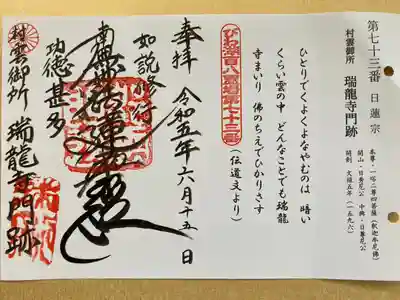 第七十三番 日蓮宗
村雲御所 瑞龍寺門跡
本尊・一塔二尊四菩薩(釈迦牟尼佛)
開山・日秀尼公 中興・日尊尼公
開創 文禄五年(一五九六)
ひとりでくよくよなやむのは 暗い
くらい雲の中 どんなことでも瑞龍
寺まいり 佛のちえでひかりさす
(伝道文より)
びわ湖百八霊場第七十三番
奉拝 令和五年六月十五日
如説修行
南無妙法蓮華経
功徳甚多
村雲御所 瑞龍寺門跡